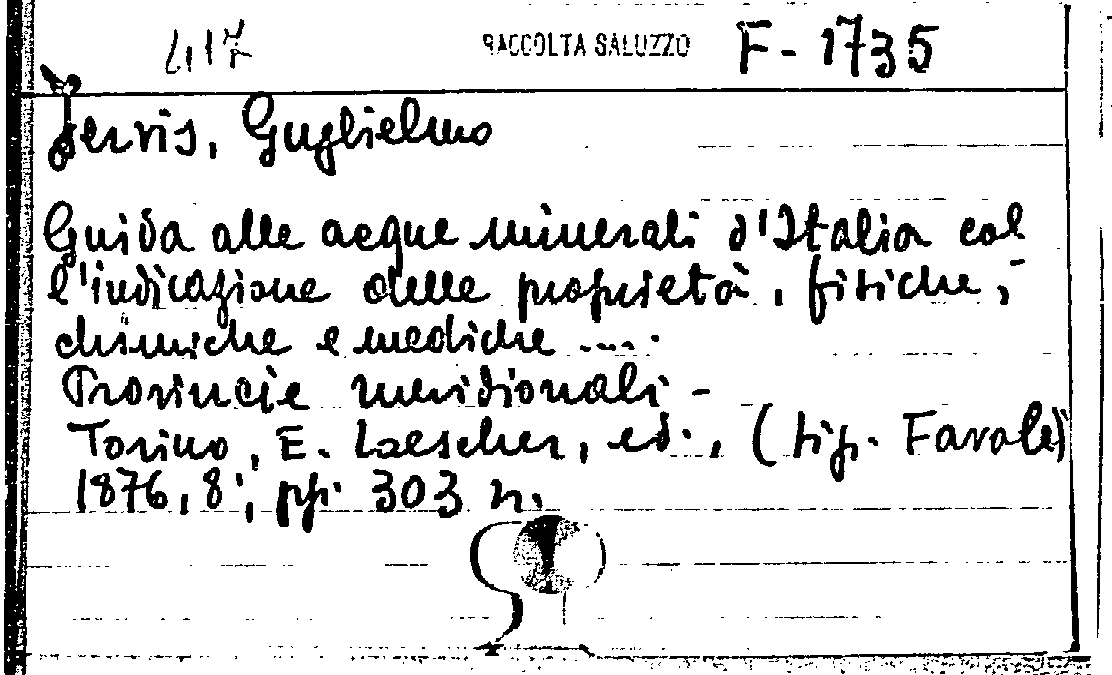 417 RACCOLTA SALUZZO F-1735
Jervis, Guglielmo
Guida alle acque minerali d'Italia col
l'indicazione delle proprietà, fisiche,
chimiche e mediche ....
Provincie meridionali -
Torino, E. Loescher, ed., (tip. Favale)
1876, 8°, pp. 303 n.